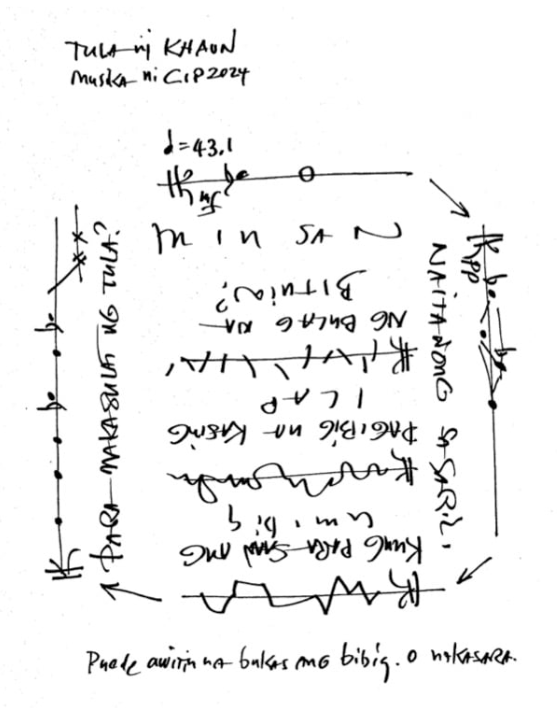 TULA ni KHAVN
MUSIKA ni CIP 2024
d=43.1
MINSAN
pp
NAITANONG SA SARILI
KUNG PARA SAAN ANG
umibig
PAGIBIG NA KASING
ILAP
NG BULAG NA
BITUIN?
PARA MAKASULAT NG TULA?
Puede awitin na bukas ang bibig. o NAKASARA.